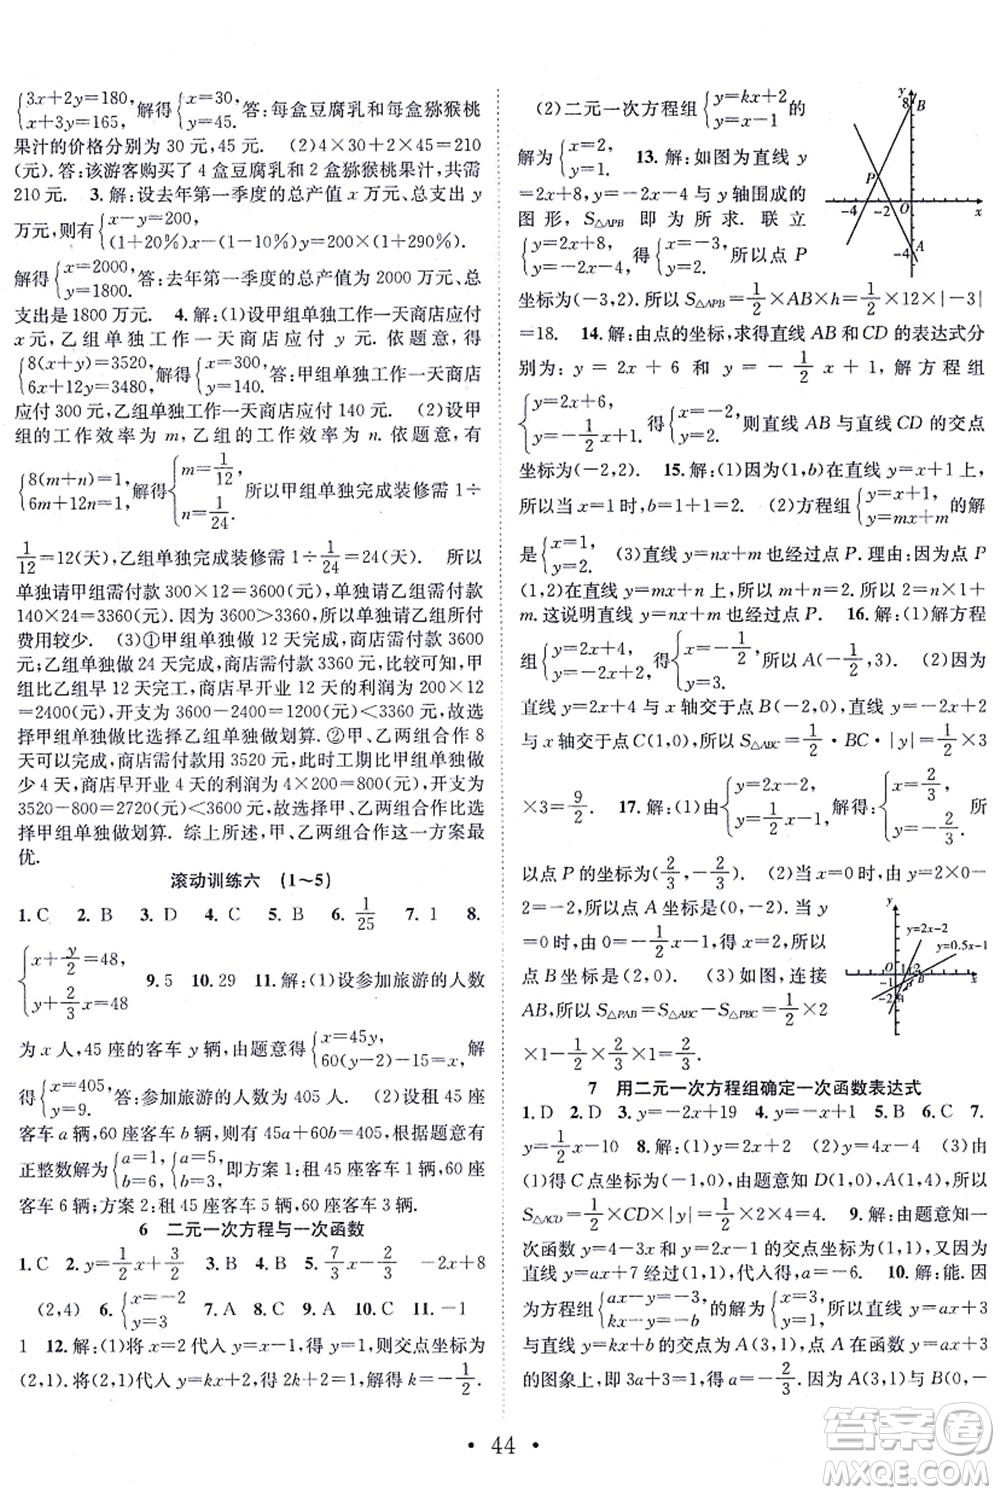 {3x+2y=180, x+3y=165, 解得{x=30, y=45. 答:每盒豆腐乳和每盒猕猴桃
果汁的价格分别为 30 元,45 元. (2)4×30+2×45=210
(元). 答:该游客购买了 4 盒豆腐乳和 2 盒猕猴桃果汁,共需
210 元. 3. 解:设去年第一季度的总产值 x 万元,总支出 y
万元,则有{x-y=200, (1+20%)x-(1-10%)y=200+750.
解得{x=2000, y=1800. 答:去年第一季度的总产值为 2000 万元,总
支出是 1800 万元. 4. 解:(1)设甲组单独工作一天商店应付
x 元,乙组单独工作一天商店应付 y 元. 依题意,得
{8(x+y)=3520, 6x+12y=3480, 解得{x=300, y=140. 答:甲组单独工作一天商店
应付 300 元,乙组单独工作一天商店应付 140 元. (2)设甲
组的工作效率为 m,乙组的工作效率为 n. 依题意,得
{8(m+n)=1, 6m+12n=1, 解得{m=1/12, n=1/24. 所以甲组单独完成装修需 1÷
1/12=12(天),乙组单独完成装修需 1÷1/24=24(天). 所以
单独请甲组需付款 300×12=3600(元),单独请乙组需付款
140×24=3360(元). 因为 3600>3360,所以单独请乙组
费用较少. (3)①甲组单独做 12 天完成,商店需付款 3600
元;乙组单独做 24 天完成,商店需付款 3360 元. 比较可知,甲
组比乙组早 12 天完工,商店早开业 12 天的利润为 200×12
=2400(元),开支为 3600-2400=1200(元)<3360 元,故选
择甲组单独做划算. ②甲、乙两组合作 8
天可以完成,需付款 3520 元,此时工期比甲组单独做
少 4 天,商店早开业 4 天的利润为 4×200=800(元),开支为
3520-800=2720(元)<3600 元,故选择甲、乙两组合作比
选择甲组单独做划算. 综上所述,甲、乙两组合作这一方案最
优.
滚动训练六 (1~5)
1. C 2. B 3. D 4. C 5. B 6. 1/25 7. 1 8.
{x+y/2=48, y+2/3x=48 9. 5 10. 29 11. 解:(1)设参加旅游的人数
为 x 人,45 座的客车 y 辆,由题意得{x=45y, 60(y-2)=x-15, 解
得{x=405, y=9. 答:参加旅游的人数为 405 人. (2)设租 45 座
客车 a 辆,租 60 座客车 b 辆,根据题意有 45a+60b=405. 有
正整数解为{a=1, b=6, {a=5, b=3, 即方案 1:租 45 座客车 1 辆,60 座
客车 6 辆;方案 2:租 45 座客车 5 辆,60 座客车 3 辆.
6 二元一次方程与一次函数
1. C 2. D 3. y=1/2x+3/2 4. B 5. 7/3 -2/3 -2x+8
(2,4) 6. {x=-2 y=3 7. A 8. A 9. A 10. C 11. -1
1 12. 解:(1)将 x=2 代入 y=x-1,得 y=1,则交点坐标为
(2,1). 将(2,1)代入 y=kx+2,得 2k+2=1,解得 k=-1/2.
(2)二元一次方程组{y=kx+2 y=x-1 的
解为{x=2, y=1. 13. 解:如图为直线 y
=2x+8,y=-2x-4 与 y 轴围成的
图形,S△APB 即为所求. 联立
{y=2x+8, y=-2x-4, 得{x=-3, y=2, 所以点 P
坐标为(-3,2). 所以 S△APB=1/2×AB×h=1/2×12×|-3|
=18. 14. 解:由点的坐标,求得直线 AB 和 CD 的表达式分
别为: y=2x+6 和 y=-1/2x+1, 解方程组
{y=2x+6, y=-1/2x+1. 得{x=-2, y=2. 则直线 AB 与直线 CD 的交点
坐标为(-2,2). 15. 解:(1)因为(1,b)在直线 y=x+1上,
所以当 x=1 时,b=1+1=2. (2)方程组{y=x+1, y=mx+n 的解
是{x=1, y=2. (3)直线 y=nx+m 也经过点 P. 理由:因为点 P
(1,2)在直线 y=mx+n 上,所以 m+n=2,所以 2=n×1+
m. 这说明直线 y=nx+m 也经过点 P. 16. 解:(1)解方程
组{y=2x+4, y=-2x+2, 得{x=-1/2, y=3. 所以 A(-1/2,3). (2)因为
直线 y=2x+4 与 x 轴交于点 B(-2,0),直线 y=-2x+2
与 x 轴交于点 C(1,0),所以 S△ABC=1/2·BC·|y|=1/2×3
×3=9/2. 17. 解:(1)由{y=-1/2x-1, y=2x-2, 解得:{x=2/3, y=-2/3, 所
以点 P 坐标为(2/3,-2/3). (2)当 x=0 时,y=2×0-2=
-2,所以点 A 坐标为(0,-2). 当 y
=0 时,0=-1/2x-1,所以 x=2,所以
点 B 坐标是(2,0). (3)如图,连接
AB,所以 S△PAB=S△ABC-S△PBC=1/2×2
×1-1/2×1×2/3=2/3.
7 用二元一次方程组确定一次函数表达式
1. D 2. D 3. y=-2x+19 4. y=-x+1 5. B 6. C 7.
y=1/2x-10 8. 解:(1)y=2x+2 (2)y=4x+4 (3)由
(1)得 C 点坐标为(-1,0),由(2)得 D 点坐标为(0,4). 所以
S△ACD=1/2×CD×|y|=1/2×2×4=4. 9. 解:由题意知一
次函数 y=4x-3 与 y=-x+2 的交点坐标为(1,1),又因为
直线 y=ax+7 经过(1,1),代入得,a=-6. 10. 解:能. 因
为方程组{ax-y=-3, kx-y=-b 的解为{x=3, y=1, 所以直线 y=ax+3
与直线 y=kx+b 的交点为 A(3,1),点 A 在函数 y=ax+3
的图象上,即 3a+3=1,得 a=-2/3. 因为 A(3,1)与 B(0,-
y
8
B
P
-4
-2
O
x
A
-4
y
y=2x-2
y=0.5x-1
O
1
2
B
x
-1
-2
A
· 44 ·
答案卷
MXQE.COM